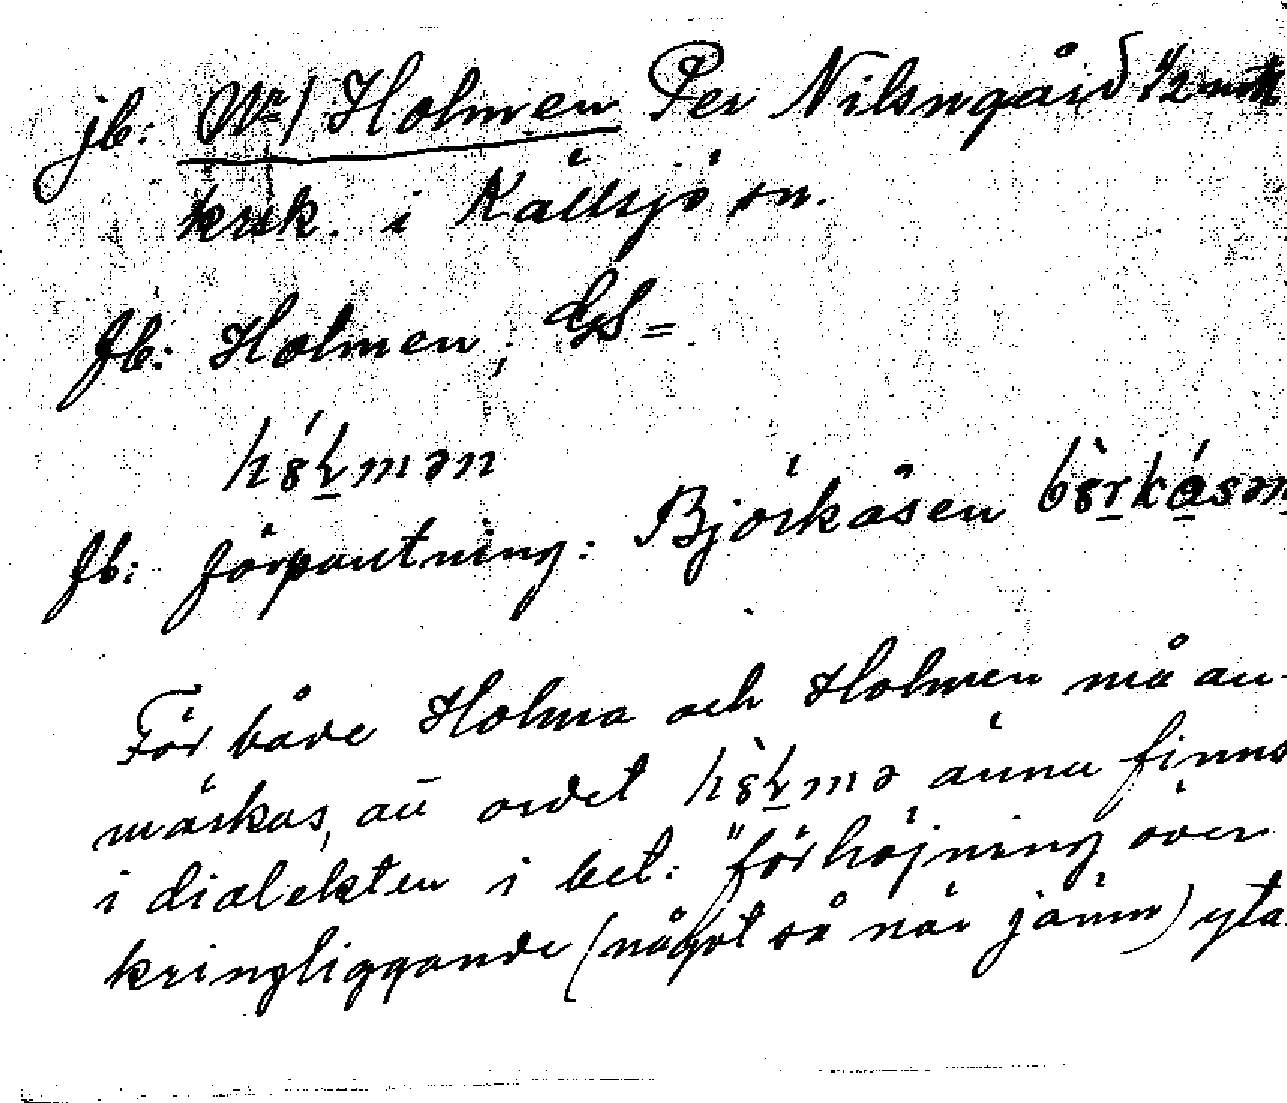 jb: N:r 1 Holmen Per Nilsngård 1/2 mtl
krsk. i Källsjö sn.
fb: Holmen; GS=
hɞ́ɭmən
fb: förpantning: Björkåsen bɞ̀rkásən
För både Holma och Holmen må an-
märkas, att ordet hɞ̀ɭmə ännu finns
i dialekten i bet: "förhöjning över
kringliggande (något så när jämn) yta.